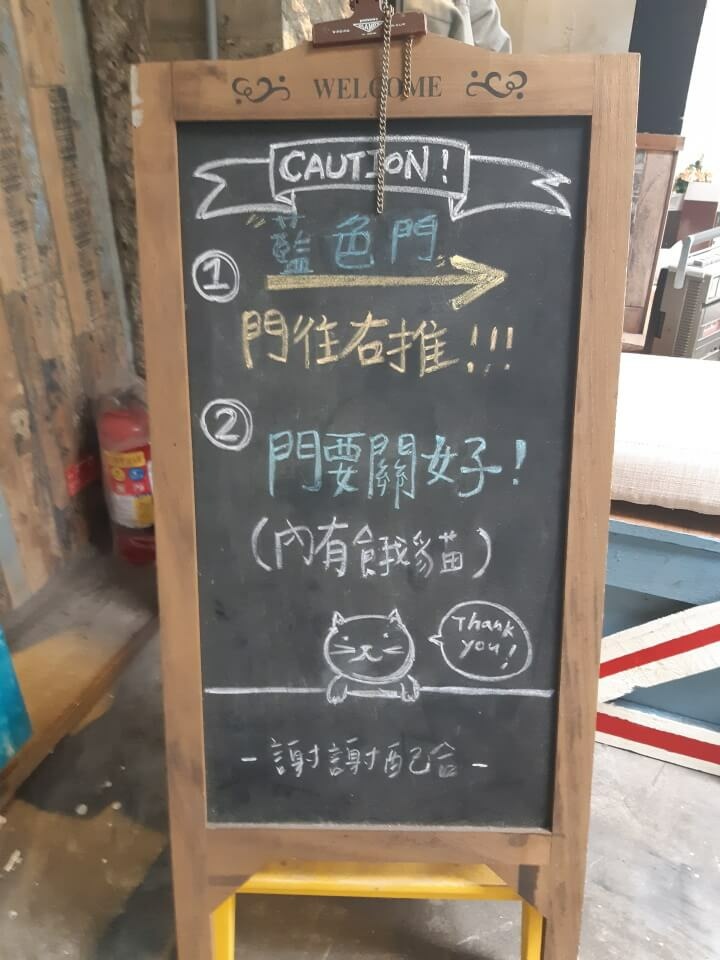 WELCOME
CAUTION!
"藍色門"
① 
門往右推!!!
② 
門要關好!
(內有餓貓)
Thank
you!
-謝謝配合-